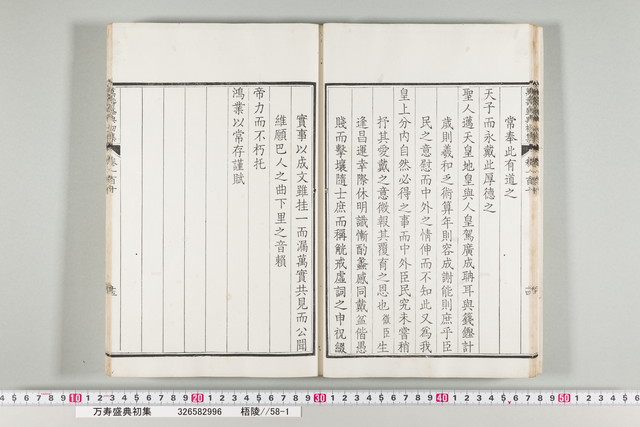 常奉此有道之
天子而永戴此厚德之
聖人邁天皇地皇與人皇駕廣成聃耳與籛鏗計
歲則羲和乏術算年則容成謝能則庶乎臣
民之意慰而中外之情伸而不知此又為我
皇上分內自然必得之事而中外臣民究未嘗稍
抒其愛戴之意微報其覆育之恩也微臣生
逢昌運幸際休明識慚酌蠡感同戴盆偕愚
賤而擊壤隨士庶而稱觥戒虛詞之申祝綴
實事以成文雖挂一而漏萬實共見而公聞
維願巴人之曲下里之音賴
帝力而不朽托
鴻業以常存謹賦
万寿盛典初集 326582996 梧陵//58-1
10 20 30 40 50